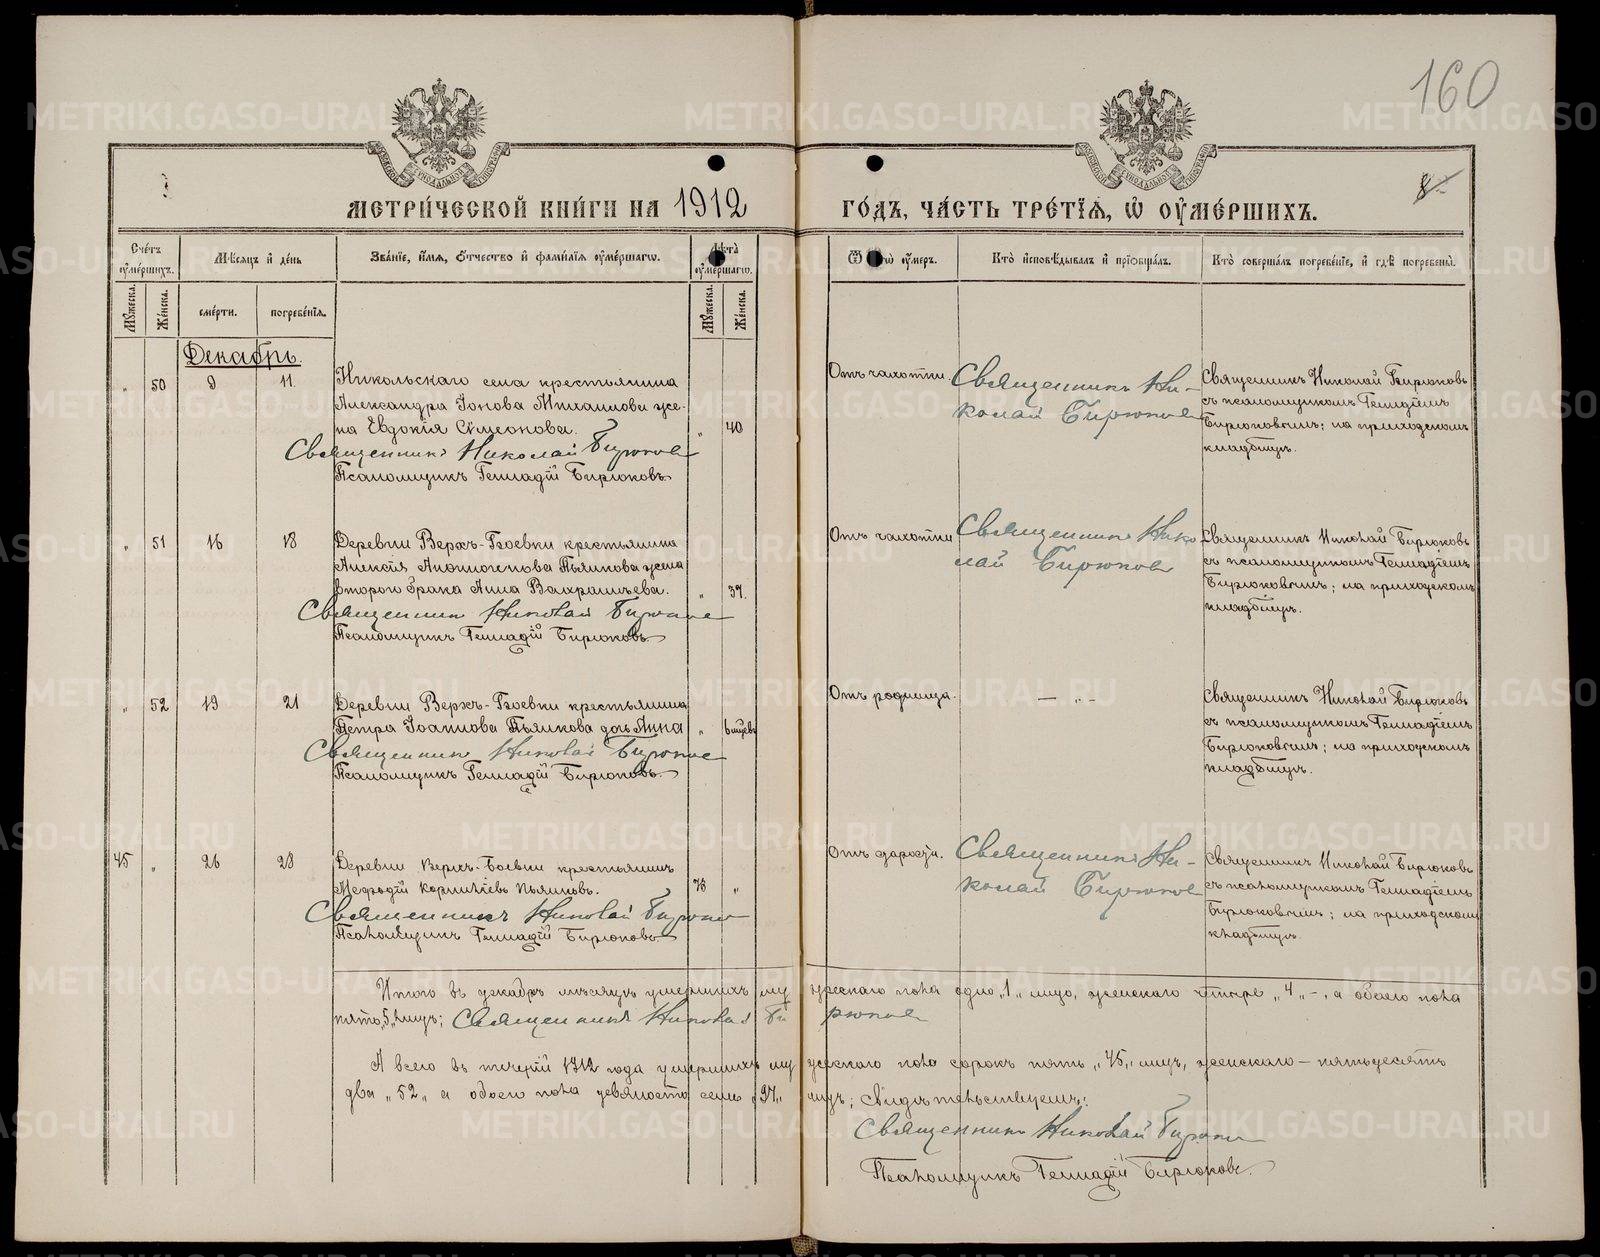 160
МЕТРИ́ЧЕСКОЙ КНИ́ГИ НА 1912 ГО́ДЪ, ЧА́СТЬ ТРЕ́ТЇѦ, Ѡ҆ ОУ҆МЕ́РШИХЪ.
Сче́тъ оу҆ме́ршихъ.
Мѣ́сяцъ и҆ де́нь
Зва́нїе, и҆́мѧ, ѻ҆́тчество и҆ фами́лїѧ оу҆ме́ршагѡ.
Лѣ́та оу҆ме́ршагѡ.
Ѿ чегѡ̀ оу҆́меръ.
Кто̀ и҆сповѣ́дывалъ и҆ прїѡбща́лъ.
Кто̀ соверша́лъ погребе́нїе, и҆ гдѣ̀ погребены̀.
Мꙋ́жеска.
Же́нска.
сме́рти.
погребе́нїѧ.
Мꙋ́жеска.
Же́нска.
Декабрь.
„ 50 9 11.
Никольскаго села крестьянина
Александра Іонова Михаилова же-
на Евдокія Сѵмеонова. „ 40
Священникъ Николай Бирюков
Псаломщикъ Геннадій Бирюковъ
Отъ чахотки.
Священникъ Ни-
колай Бирюков
Священникъ Николай Бирюковъ
съ псаломщикомъ Геннадіемъ
Бирюковымъ; на приходскомъ
кладбищѣ.
„ 51 16 18
Деревни Верхъ-Боевки крестьянина
Алексія Пьянкова жена
второго брака Анна Вахрамѣева. „ 37.
Священник Николай Бирюков
Псаломщикъ Геннадій Бирюковъ
Отъ чахотки
Священникъ Нико
лай Бирюков
Священникъ Николай Бирюковъ
съ псаломщикомъ Геннадіемъ
Бирюковымъ; на приходскомъ
кладбищѣ.
„ 52 19 21
Деревни Верхъ-Боевки крестьянина
Петра Іоаннова Пьянкова дочь Анна „ 6 мцевъ
Священникъ Николай Бирюков
Псаломщикъ Геннадій Бирюковъ.
Отъ родимца.
— „ —
Священникъ Николай Бирюковъ
съ псаломщикомъ Геннадіемъ
Бирюковымъ; на приходскомъ
кладбищѣ.
45 „ 26 28
Деревни Верхъ-Боевки крестьянинъ
Меѳодій Корниліевъ Пьянковъ. 73 „
Священникъ Николай Бирюков
Псаломщикъ Геннадій Бирюковъ
Отъ старости.
Священникъ Ни-
колай Бирюков
Священникъ Николай Бирюковъ
съ псаломщикомъ Геннадіемъ
Бирюковымъ; на приходскомъ
кладбищѣ.
Итого въ декабрѣ мѣсяцѣ умершихъ мужескаго пола одно „1„ лицо, женскаго четыре „4„ –, а обоего пола
пять „5„ лицъ; Священникъ Николай Бирюков
А всего въ теченіи 1912 года умершихъ мужескаго пола сорокъ пять „45„ лицъ, женскаго – пятьдесятъ
два „52„ а обоего пола девяносто семь „97„ лицъ; Свидѣтельствуемъ:
Священникъ Николай Бирюков
Псаломщикъ Геннадій Бирюковъ.
METRIKI.GASO-URAL.RU